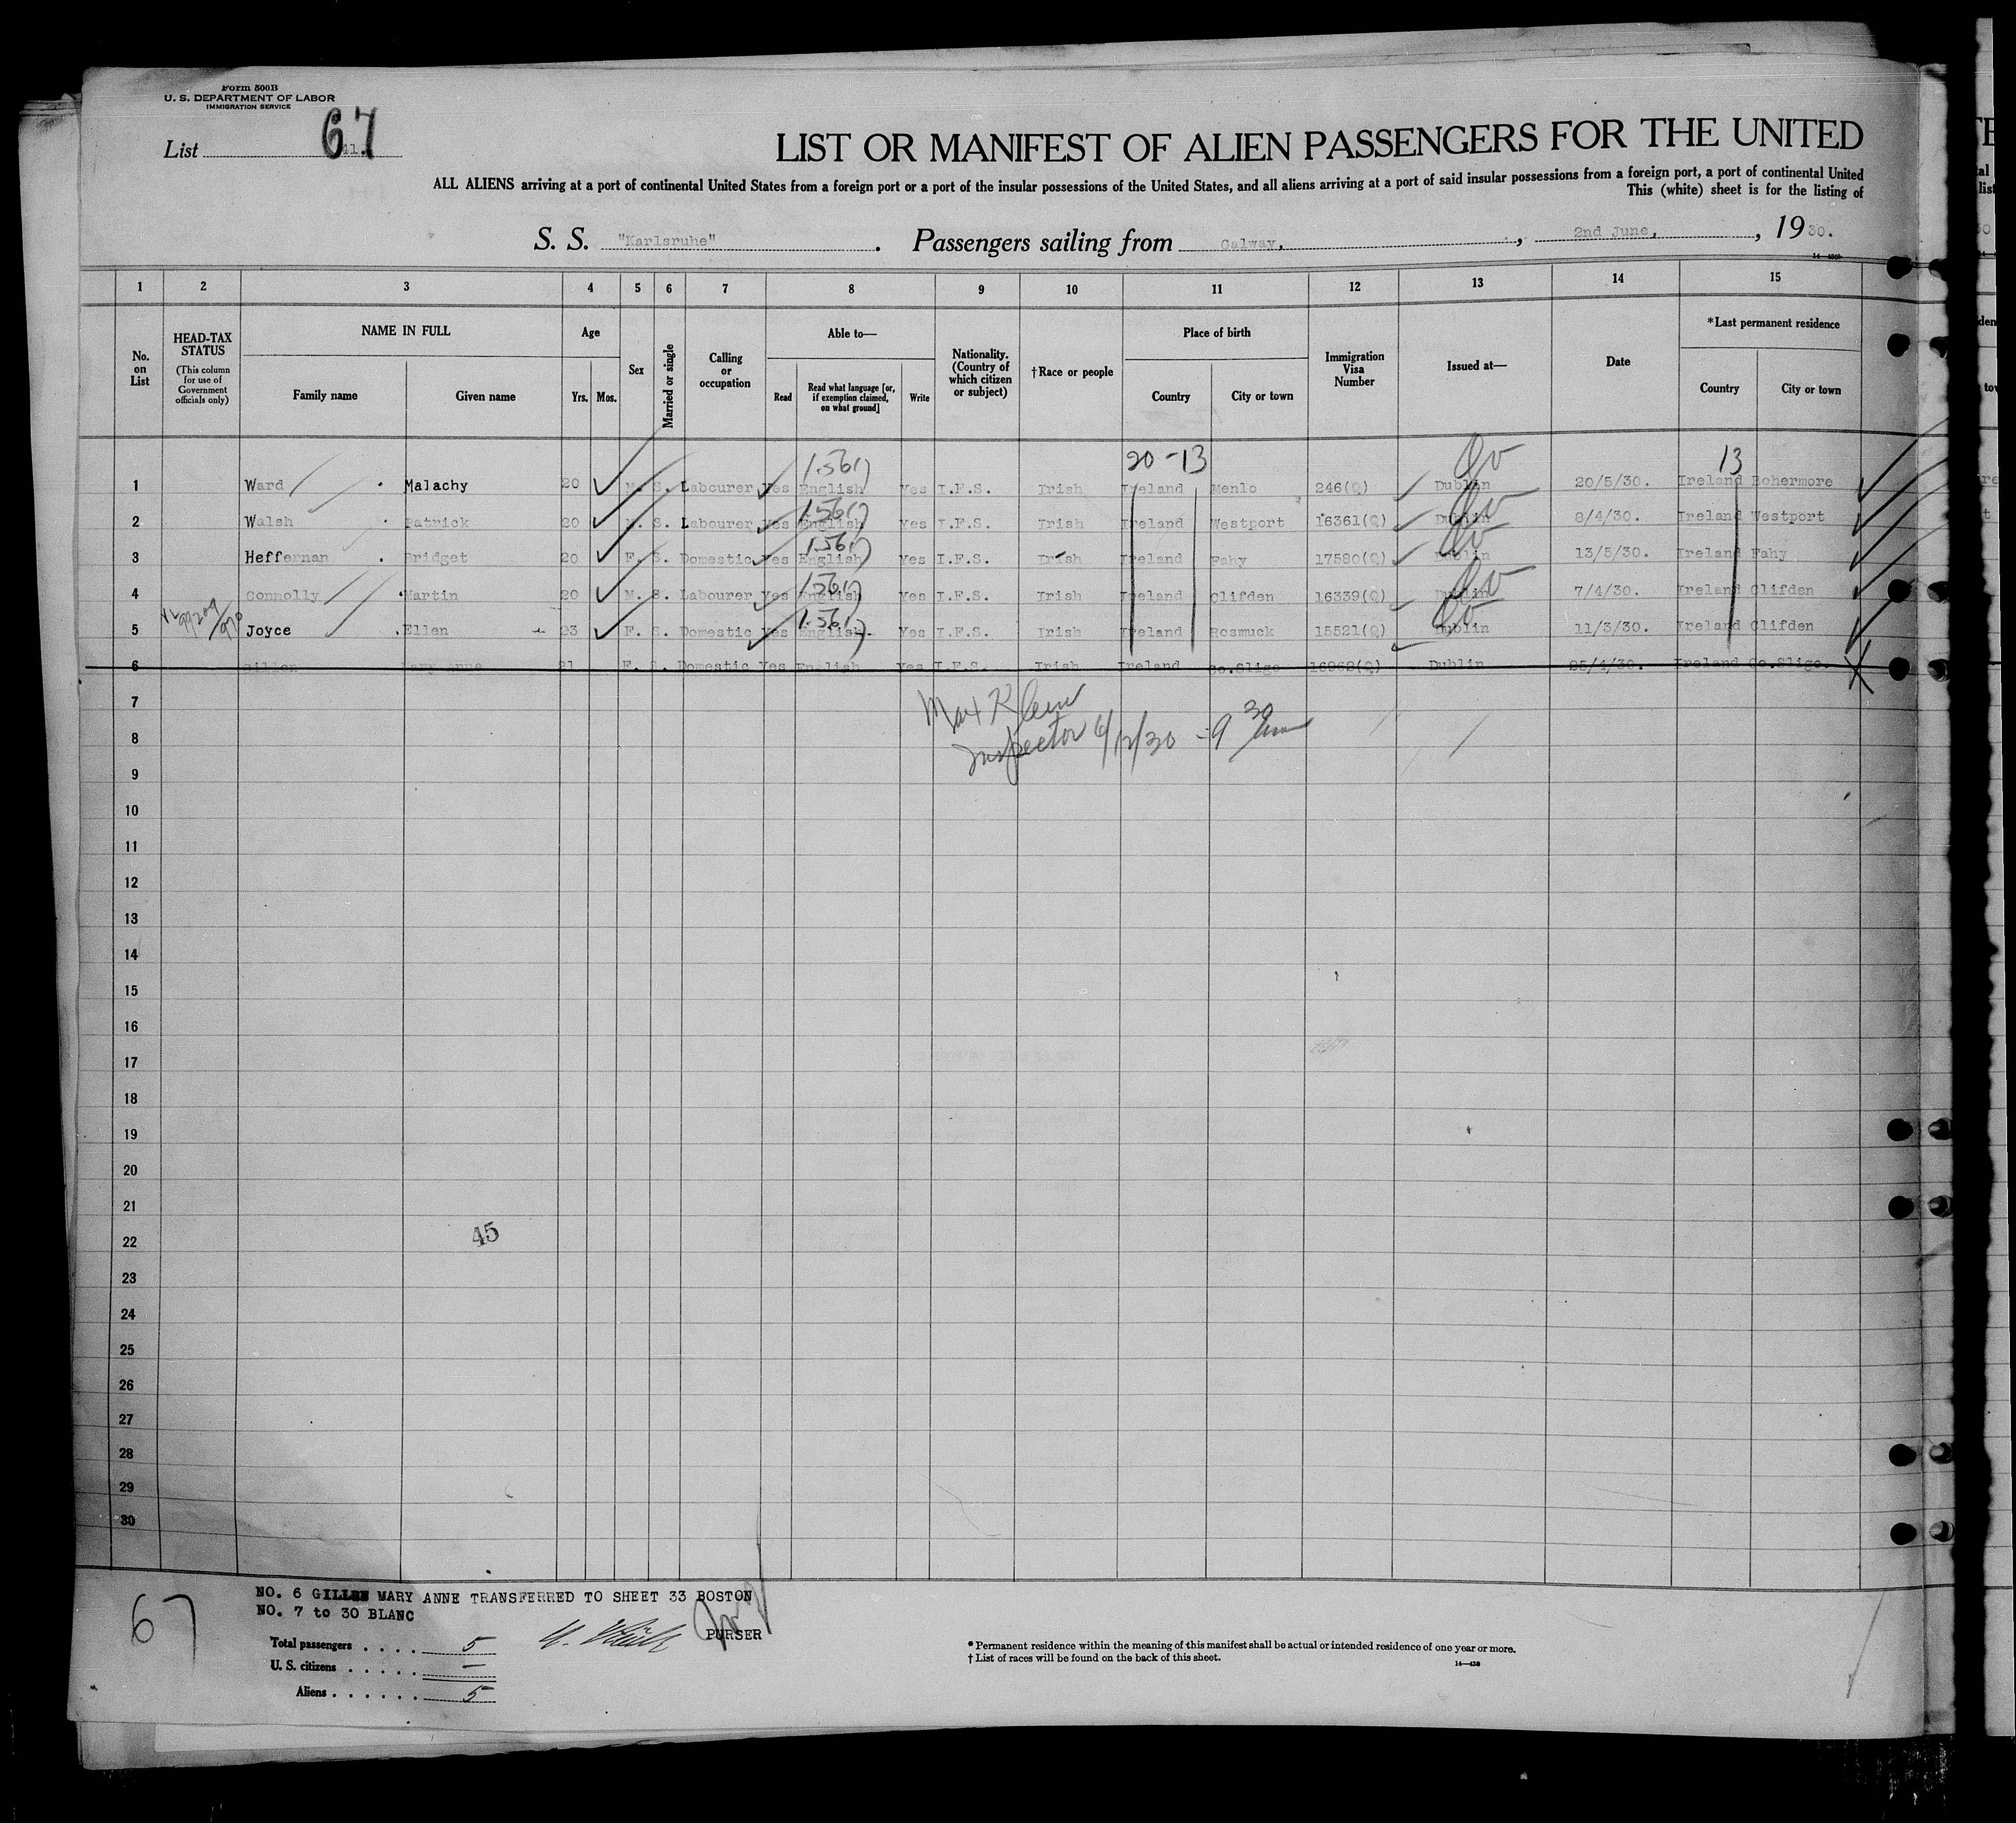 Form 500B
U. S. DEPARTMENT OF LABOR
IMMIGRATION SERVICE
List 67
LIST OR MANIFEST OF ALIEN PASSENGERS FOR THE UNITED
ALL ALIENS arriving at a port of continental United States from a foreign port or a port of the insular possessions of the United States, and all aliens arriving at a port of said insular possessions from a foreign port, a port of continental United
This (white) sheet is for the listing of
S. S. "Karlsruhe" . Passengers sailing from Galway, , 2nd June, , 1930.
1 2 3 4 5 6 7 8 9 10 11 12 13 14 15
No. on List
HEAD-TAX STATUS (This column for use of Government officials only)
NAME IN FULL
Family name Given name
Age
Yrs. Mos.
Sex
Married or single
Calling or occupation
Able to—
Read Read what language [or, if exemption claimed, on what ground] Write
Nationality. (Country of which citizen or subject)
†Race or people
Place of birth
Country City or town
Immigration Visa Number
Issued at—
Date
*Last permanent residence
Country City or town
20-13 13
1 Ward Malachy 20 M. S. Labourer Yes English Yes I.F.S. Irish Ireland Menlo 246(Q) Dublin 20/5/30. Ireland Bohermore
2 Walsh Patrick 20 M. S. Labourer Yes English Yes I.F.S. Irish Ireland Westport 16361(Q) Dublin 8/4/30. Ireland Westport
3 Heffernan Bridget 20 F. S. Domestic Yes English Yes I.F.S. Irish Ireland Fahy 17580(Q) Dublin 13/5/30. Ireland Fahy
4 Connolly Martin 20 M. S. Labourer Yes English Yes I.F.S. Irish Ireland Clifden 16339(Q) Dublin 7/4/30. Ireland Clifden
5 Joyce Ellen 23 F. S. Domestic Yes English. Yes I.F.S. Irish Ireland Rosmuck 15521(Q) Dublin 11/3/30. Ireland Clifden
6 Gillen Mary Anne 21 F. S. Domestic Yes English Yes I.F.S. Irish Ireland Co.Sligo Dublin 25/4/30. Ireland Co.Sligo.
7
Max Klein
8
Inspector 6/12/30 - 9 30 am
9
10
11
12
13
14
15
16
17
18
19
20
21
22
45
23
24
25
26
27
28
29
30
67
NO. 6 GILLEN MARY ANNE TRANSFERRED TO SHEET 33 BOSTON
NO. 7 to 30 BLANC
PURSER
Total passengers . . . . 5
U. S. citizens . . . . . —
Aliens . . . . . . 5
* Permanent residence within the meaning of this manifest shall be actual or intended residence of one year or more.
† List of races will be found on the back of this sheet.